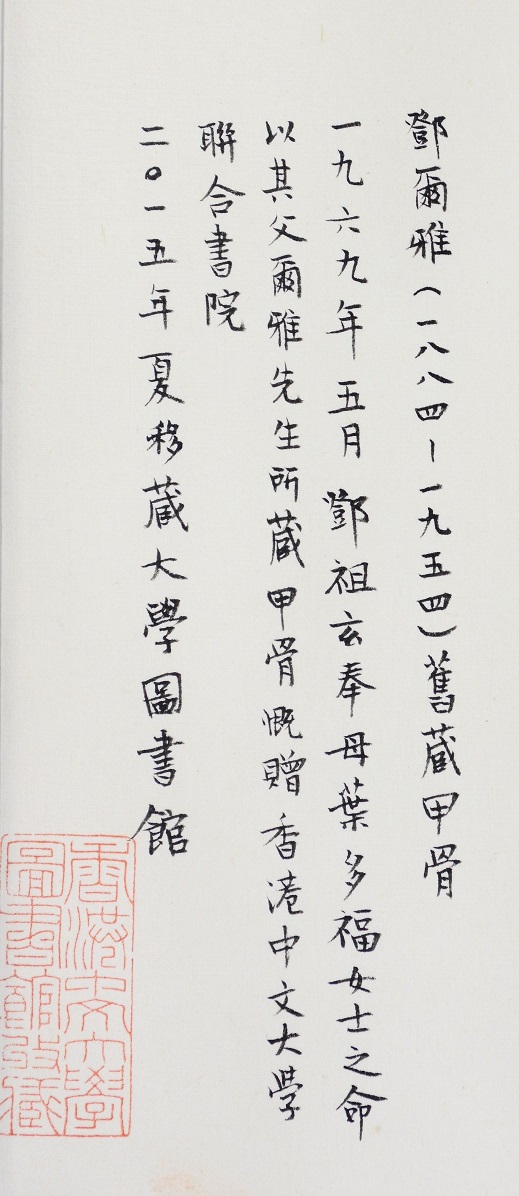 鄧爾雅（一八八四－一九五四）舊藏甲骨
一九六九年五月 鄧祖玄奉母葉多福女士之命
以其父爾雅先生所藏甲骨慨贈香港中文大學
聯合書院
二〇一五年夏移藏大學圖書館
香港中文大學
圖書館珍藏